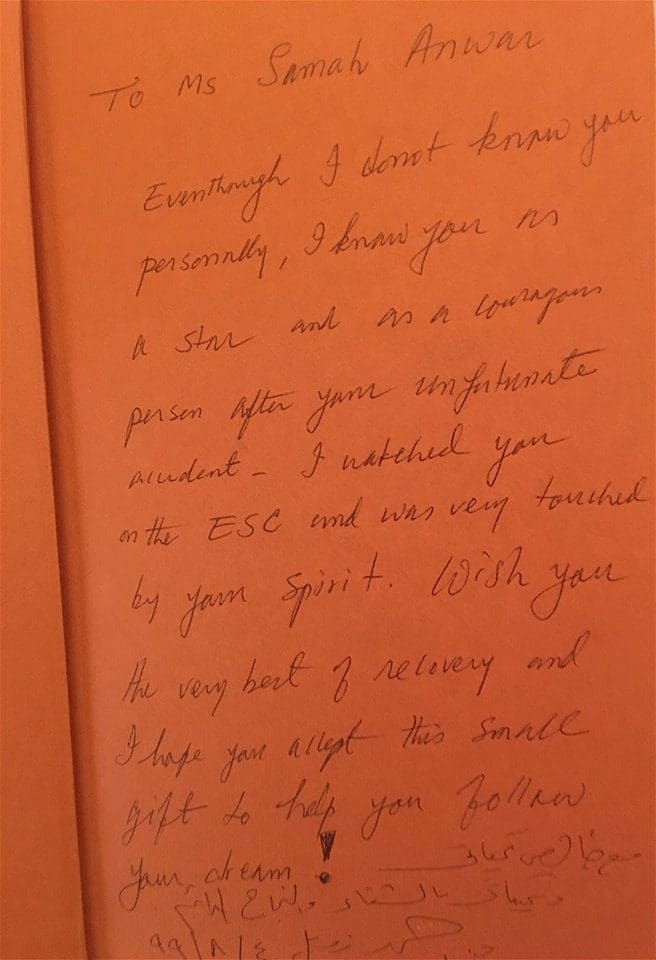 To Ms Samah Anwar
Eventhough I donot know you
personally, I know you as
a star and as a couragous
person after your unfortunate
accident - I watched you
on the ESC and was very touched
by your spirit. Wish you
the very best of recovery and
I hope you accept this small
gift to help you follow
your dream !
مع خالص تحياتى
وتمنياتى بالشفاء والنجاح
أحمد زويل ٩٩/٨/٤